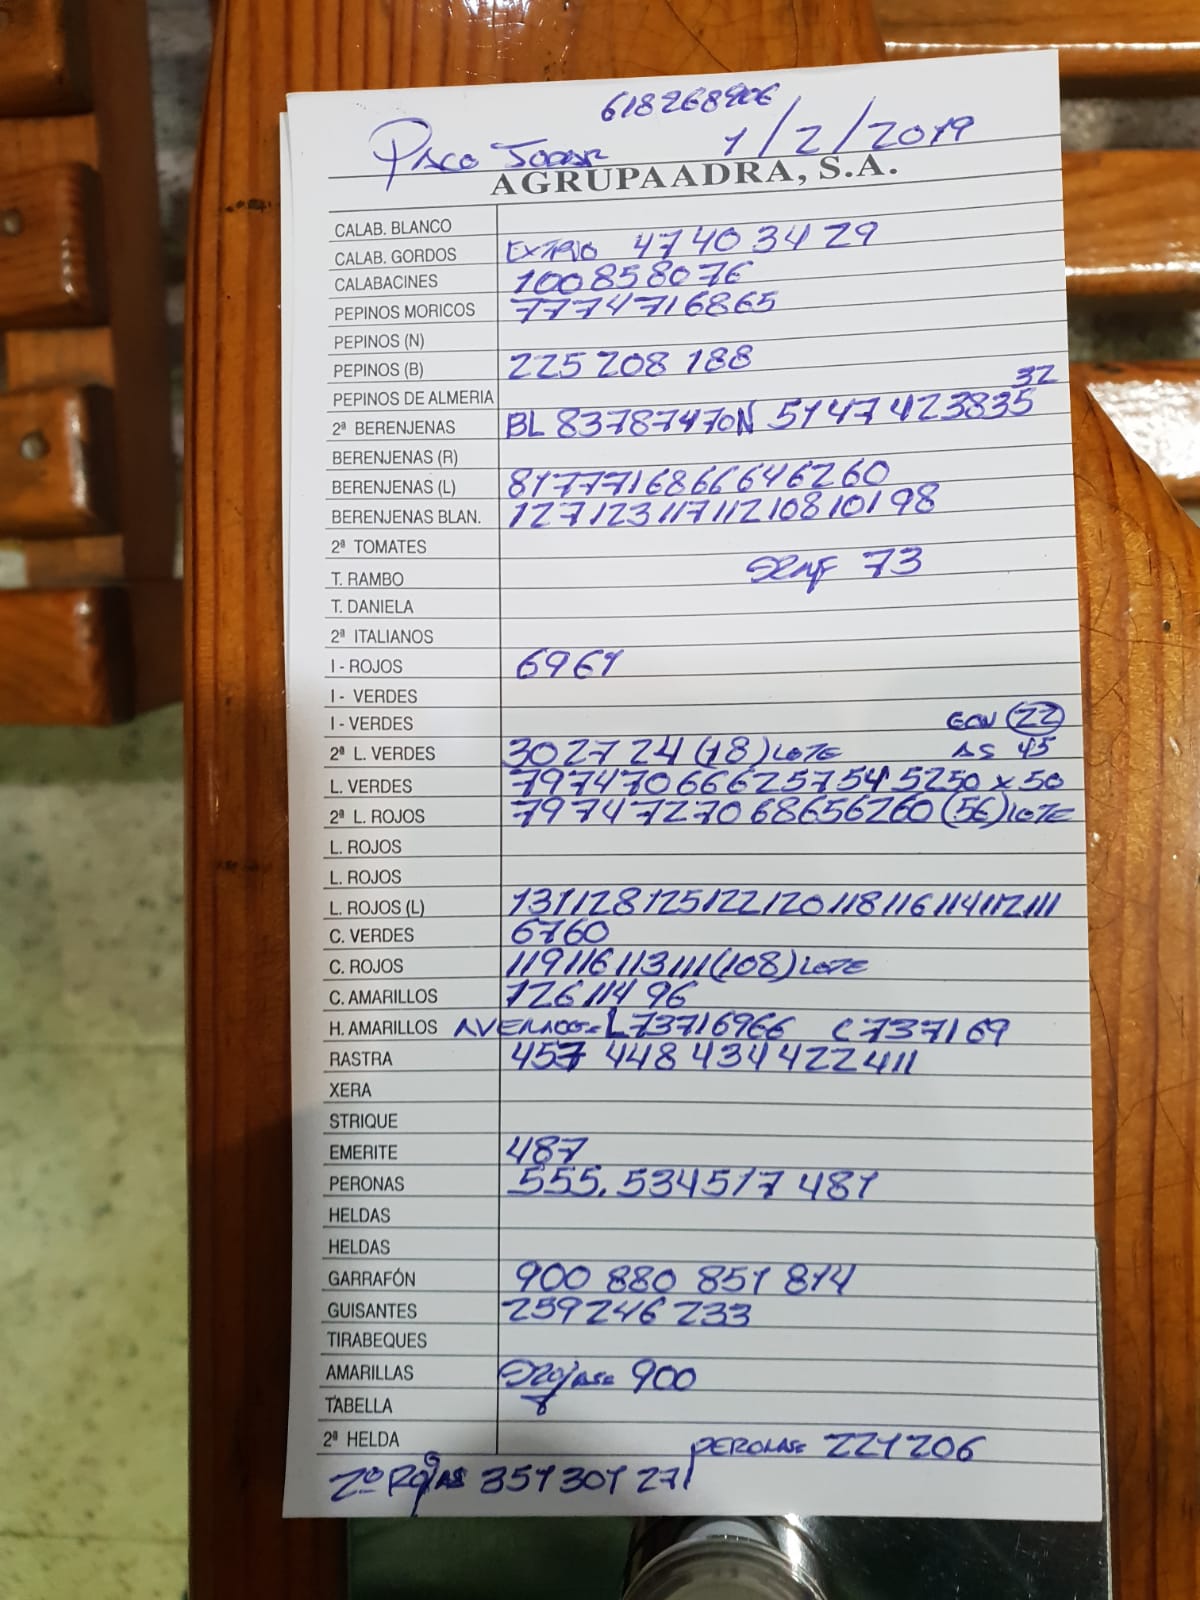 618268906
PACO JODAR 1/2/2019
AGRUPAADRA, S.A.
CALAB. BLANCO
CALAB. GORDOS 47 40 34 29
CALABACINES 100 85 80 76
PEPINOS MORICOS 77 74 71 68 65
PEPINOS (N)
PEPINOS (B) 225 208 188
PEPINOS DE ALMERIA 32
2ª BERENJENAS BL 83 78 74 70 N 51 47 42 38 35
BERENJENAS (R)
BERENJENAS (L) 81 77 71 68 66 64 62 60
BERENJENAS BLAN. 127 123 117 112 108 101 98
2ª TOMATES
T. RAMBO 73
T. DANIELA
2ª ITALIANOS
I - ROJOS 69 61
I - VERDES
I - VERDES (22)
2ª L. VERDES 30 27 24 (18) LOTE AS 45
L. VERDES 79 74 70 66 62 57 54 52 50 x 50
2ª L. ROJOS 79 74 72 70 68 65 62 60 (56) LOTE
L. ROJOS
L. ROJOS
L. ROJOS (L) 131 128 125 122 120 118 116 114 112 111
C. VERDES 67 60
C. ROJOS 119 116 113 111 (108) LOTE
C. AMARILLOS 126 114 96
H. AMARILLOS L 73 71 69 66 C 73 71 69
RASTRA 457 448 434 422 411
XERA
STRIQUE
EMERITE 487
PERONAS 555. 534 517 481
HELDAS
HELDAS
GARRAFÓN 900 880 851 814
GUISANTES 259 246 233
TIRABEQUES
AMARILLAS 900
TABELLA
2ª HELDA PERONAS 221 206
2ª ROJAS 351 301 271